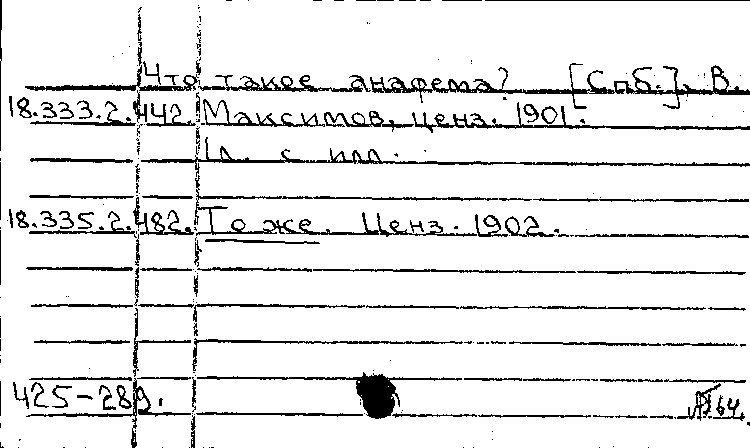 Что такое анафема? [Спб.], В.
18.333.2.442. Максимов, ценз. 1901.
1л. с илл.
18.335.2.482. То же. Ценз. 1902.
425-289.